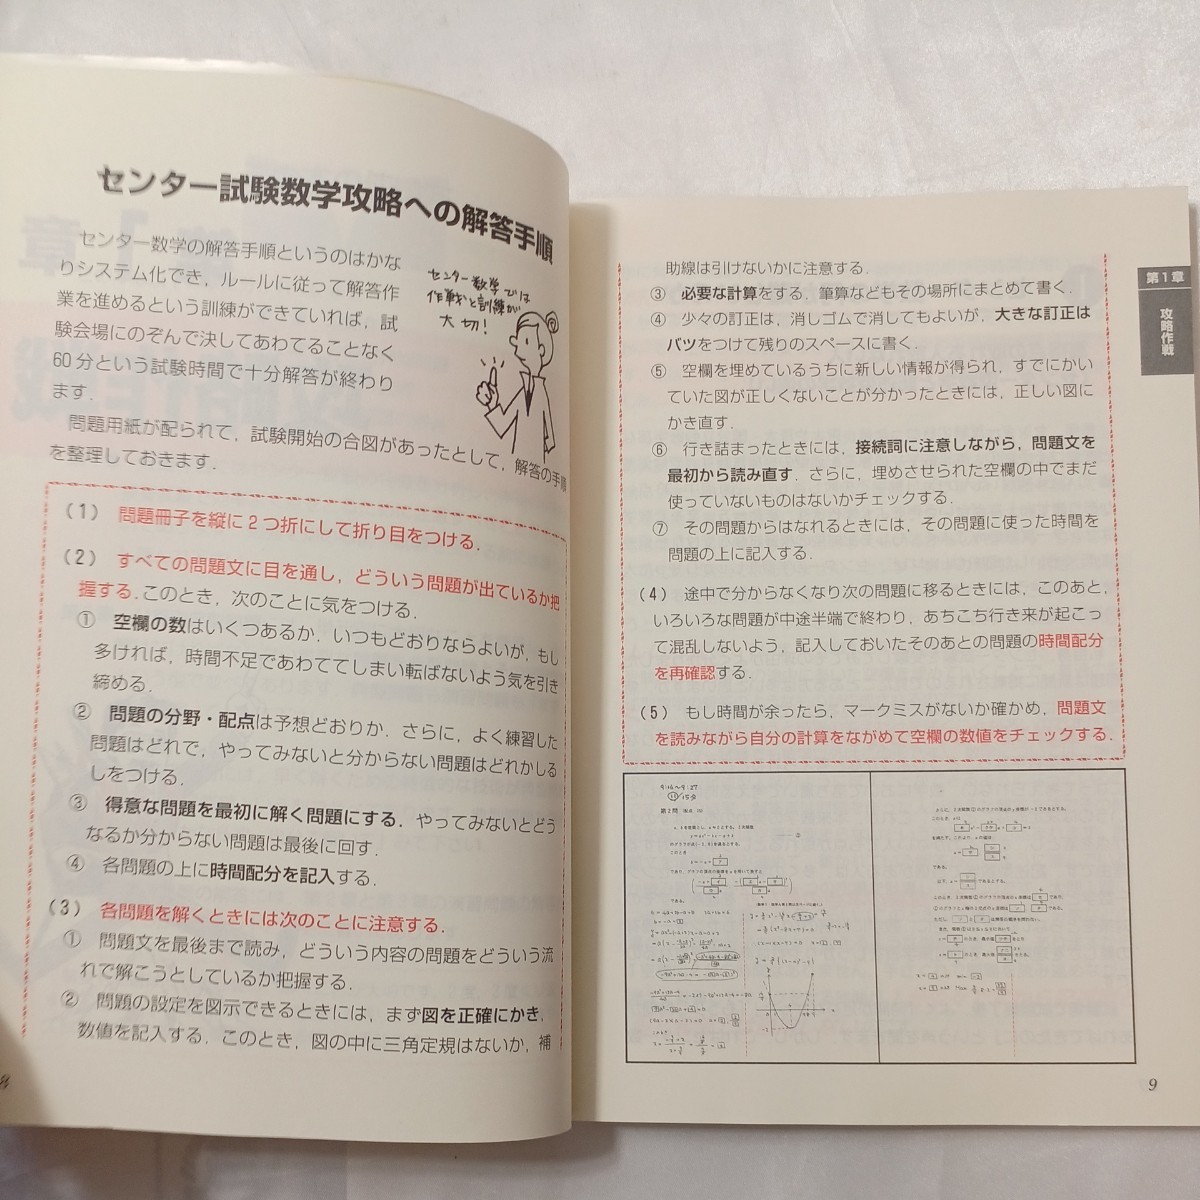 センター試験数学攻略への解答手順
センター数学の解答手順というのはかな
りシステム化でき，ルールに従って解答作
業を進めるという訓練ができていれば，試
験会場にのぞんで決してあわてることなく
60分という試験時間で十分解答が終わり
ます．
センター数学では
作戦と訓練が
大切！
問題用紙が配られて，試験開始の合図があったとして，解答の手順
を整理しておきます．
(1) 問題冊子を縦に2つ折にして折り目をつける．
(2) すべての問題文に目を通し，どういう問題が出ているか把
握する．このとき，次のことに気をつける．
① 空欄の数はいくつあるか．いつもどおりならよいが，もし
多ければ，時間不足であわててしまい転ばないよう気を引き
締める．
② 問題の分野・配点は予想どおりか．さらに，よく練習した
問題はどれで，やってみないと分からない問題はどれかしる
しをつける．
③ 得意な問題を最初に解く問題にする．やってみないとどう
なるか分からない問題は最後に回す．
④ 各問題の上に時間配分を記入する．
(3) 各問題を解くときには次のことに注意する．
① 問題文を最後まで読み，どういう内容の問題をどういう流
れで解こうとしているか把握する．
② 問題の設定を図示できるときには，まず図を正確にかき，
数値を記入する．このとき，図の中に三角定規はないか，補
8
助線は引けないかに注意する．
③ 必要な計算をする．筆算などもその場所にまとめて書く．
④ 少々の訂正は，消しゴムで消してもよいが，大きな訂正は
バツをつけて残りのスペースに書く．
⑤ 空欄を埋めているうちに新しい情報が得られ，すでにかい
ていた図が正しくないことが分かったときには，正しい図に
かき直す．
⑥ 行き詰まったときには，接続詞に注意しながら，問題文を
最初から読み直す．さらに，埋めさせられた空欄の中でまだ
使っていないものはないかチェックする．
⑦ その問題からはなれるときには，その問題に使った時間を
問題の上に記入する．
(4) 途中で分からなくなり次の問題に移るときには，このあと，
いろいろな問題が中途半端で終わり，あちこち行き来が起こっ
て混乱しないよう，記入しておいたそのあとの問題の時間配分
を再確認する．
(5) もし時間が余ったら，マークミスがないか確かめ，問題文
を読みながら自分の計算をながめて空欄の数値をチェックする．
第1章
攻略作戦
9:16〜9:27
⑪/15分
第2問
このとき
である．
9